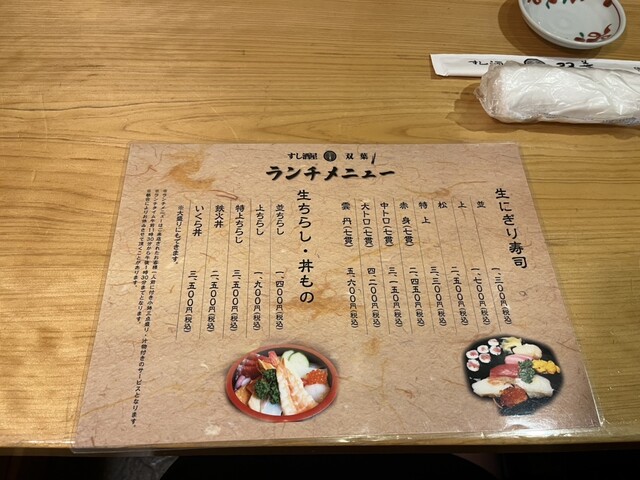 すし酒屋 双葉
ランチメニュー
生にぎり寿司
並 一、三〇〇円(税込)
上 一、七〇〇円(税込)
松 二、五〇〇円(税込)
特上 三、三〇〇円(税込)
赤身(七貫) 二、四五〇円(税込)
中トロ(七貫) 三、一五〇円(税込)
大トロ(七貫) 四、二〇〇円(税込)
雲丹(七貫) 五、六〇〇円(税込)
生ちらし・丼もの
並ちらし 一、四〇〇円(税込)
上ちらし 一、九〇〇円(税込)
特上ちらし 三、五〇〇円(税込)
鉄火丼 二、五〇〇円(税込)
いくら丼 三、五〇〇円(税込)
※大盛りにもできます。
すし酒屋